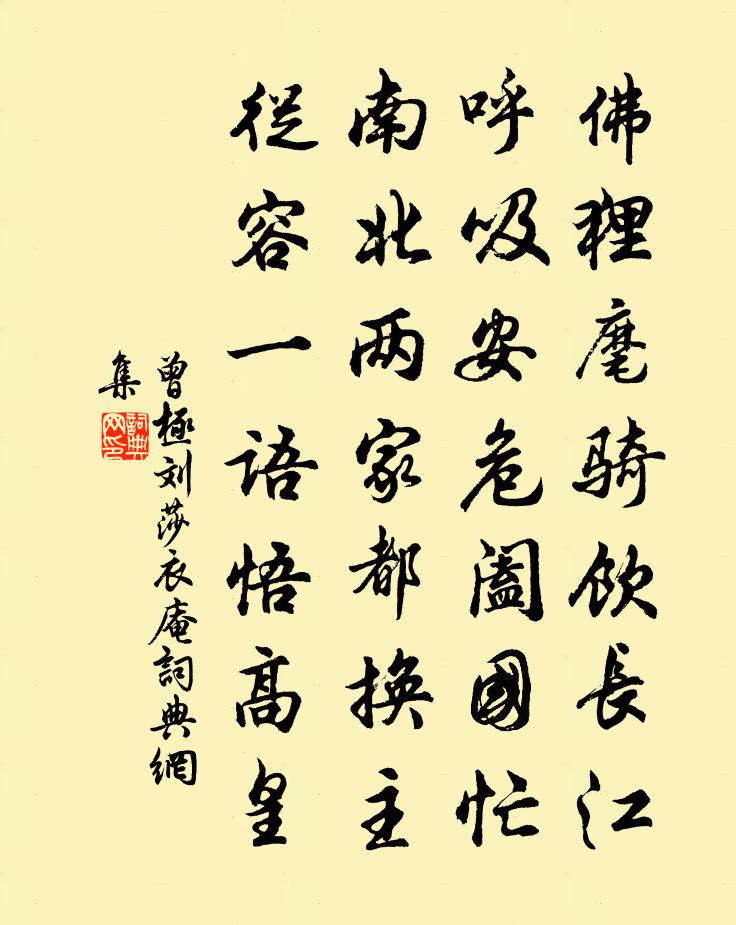 佛狸麾骑饮长江
呼吸安危阖國忙
南北两家都换主
從容一语悟高皇
曾極刘莎衣庵詞典網
集
詞典网印